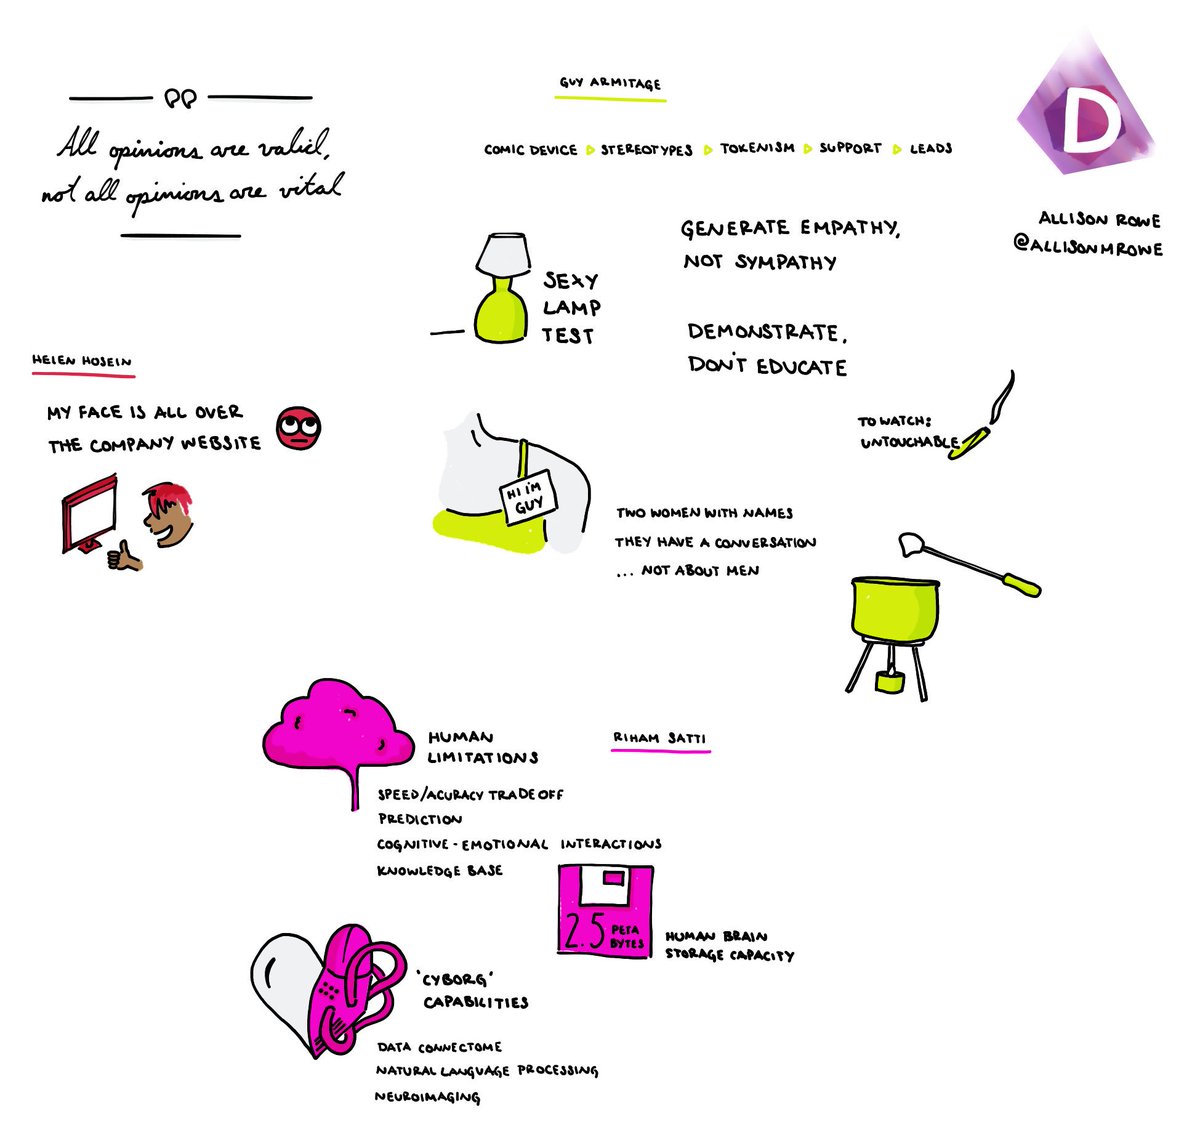 All opinions are valid,
not all opinions are vital
GUY ARMITAGE
COMIC DEVICE ▷ STEREOTYPES ▷ TOKENISM ▷ SUPPORT ▷ LEADS
D
ALLISON ROWE
@ALLISONMROWE
SEXY
LAMP
TEST
GENERATE EMPATHY,
NOT SYMPATHY
DEMONSTRATE,
DON'T EDUCATE
HELEN HOSEIN
MY FACE IS ALL OVER
THE COMPANY WEBSITE
TO WATCH:
UNTOUCHABLE
HI I'M
GUY
TWO WOMEN WITH NAMES
THEY HAVE A CONVERSATION
... NOT ABOUT MEN
HUMAN
LIMITATIONS
SPEED/ACURACY TRADE OFF
PREDICTION
COGNITIVE - EMOTIONAL INTERACTIONS
KNOWLEDGE BASE
RIHAM SATTI
2.5 PETA
BYTES
HUMAN BRAIN
STORAGE CAPACITY
'CYBORG'
CAPABILITIES
DATA CONNECTOME
NATURAL LANGUAGE PROCESSING
NEUROIMAGING